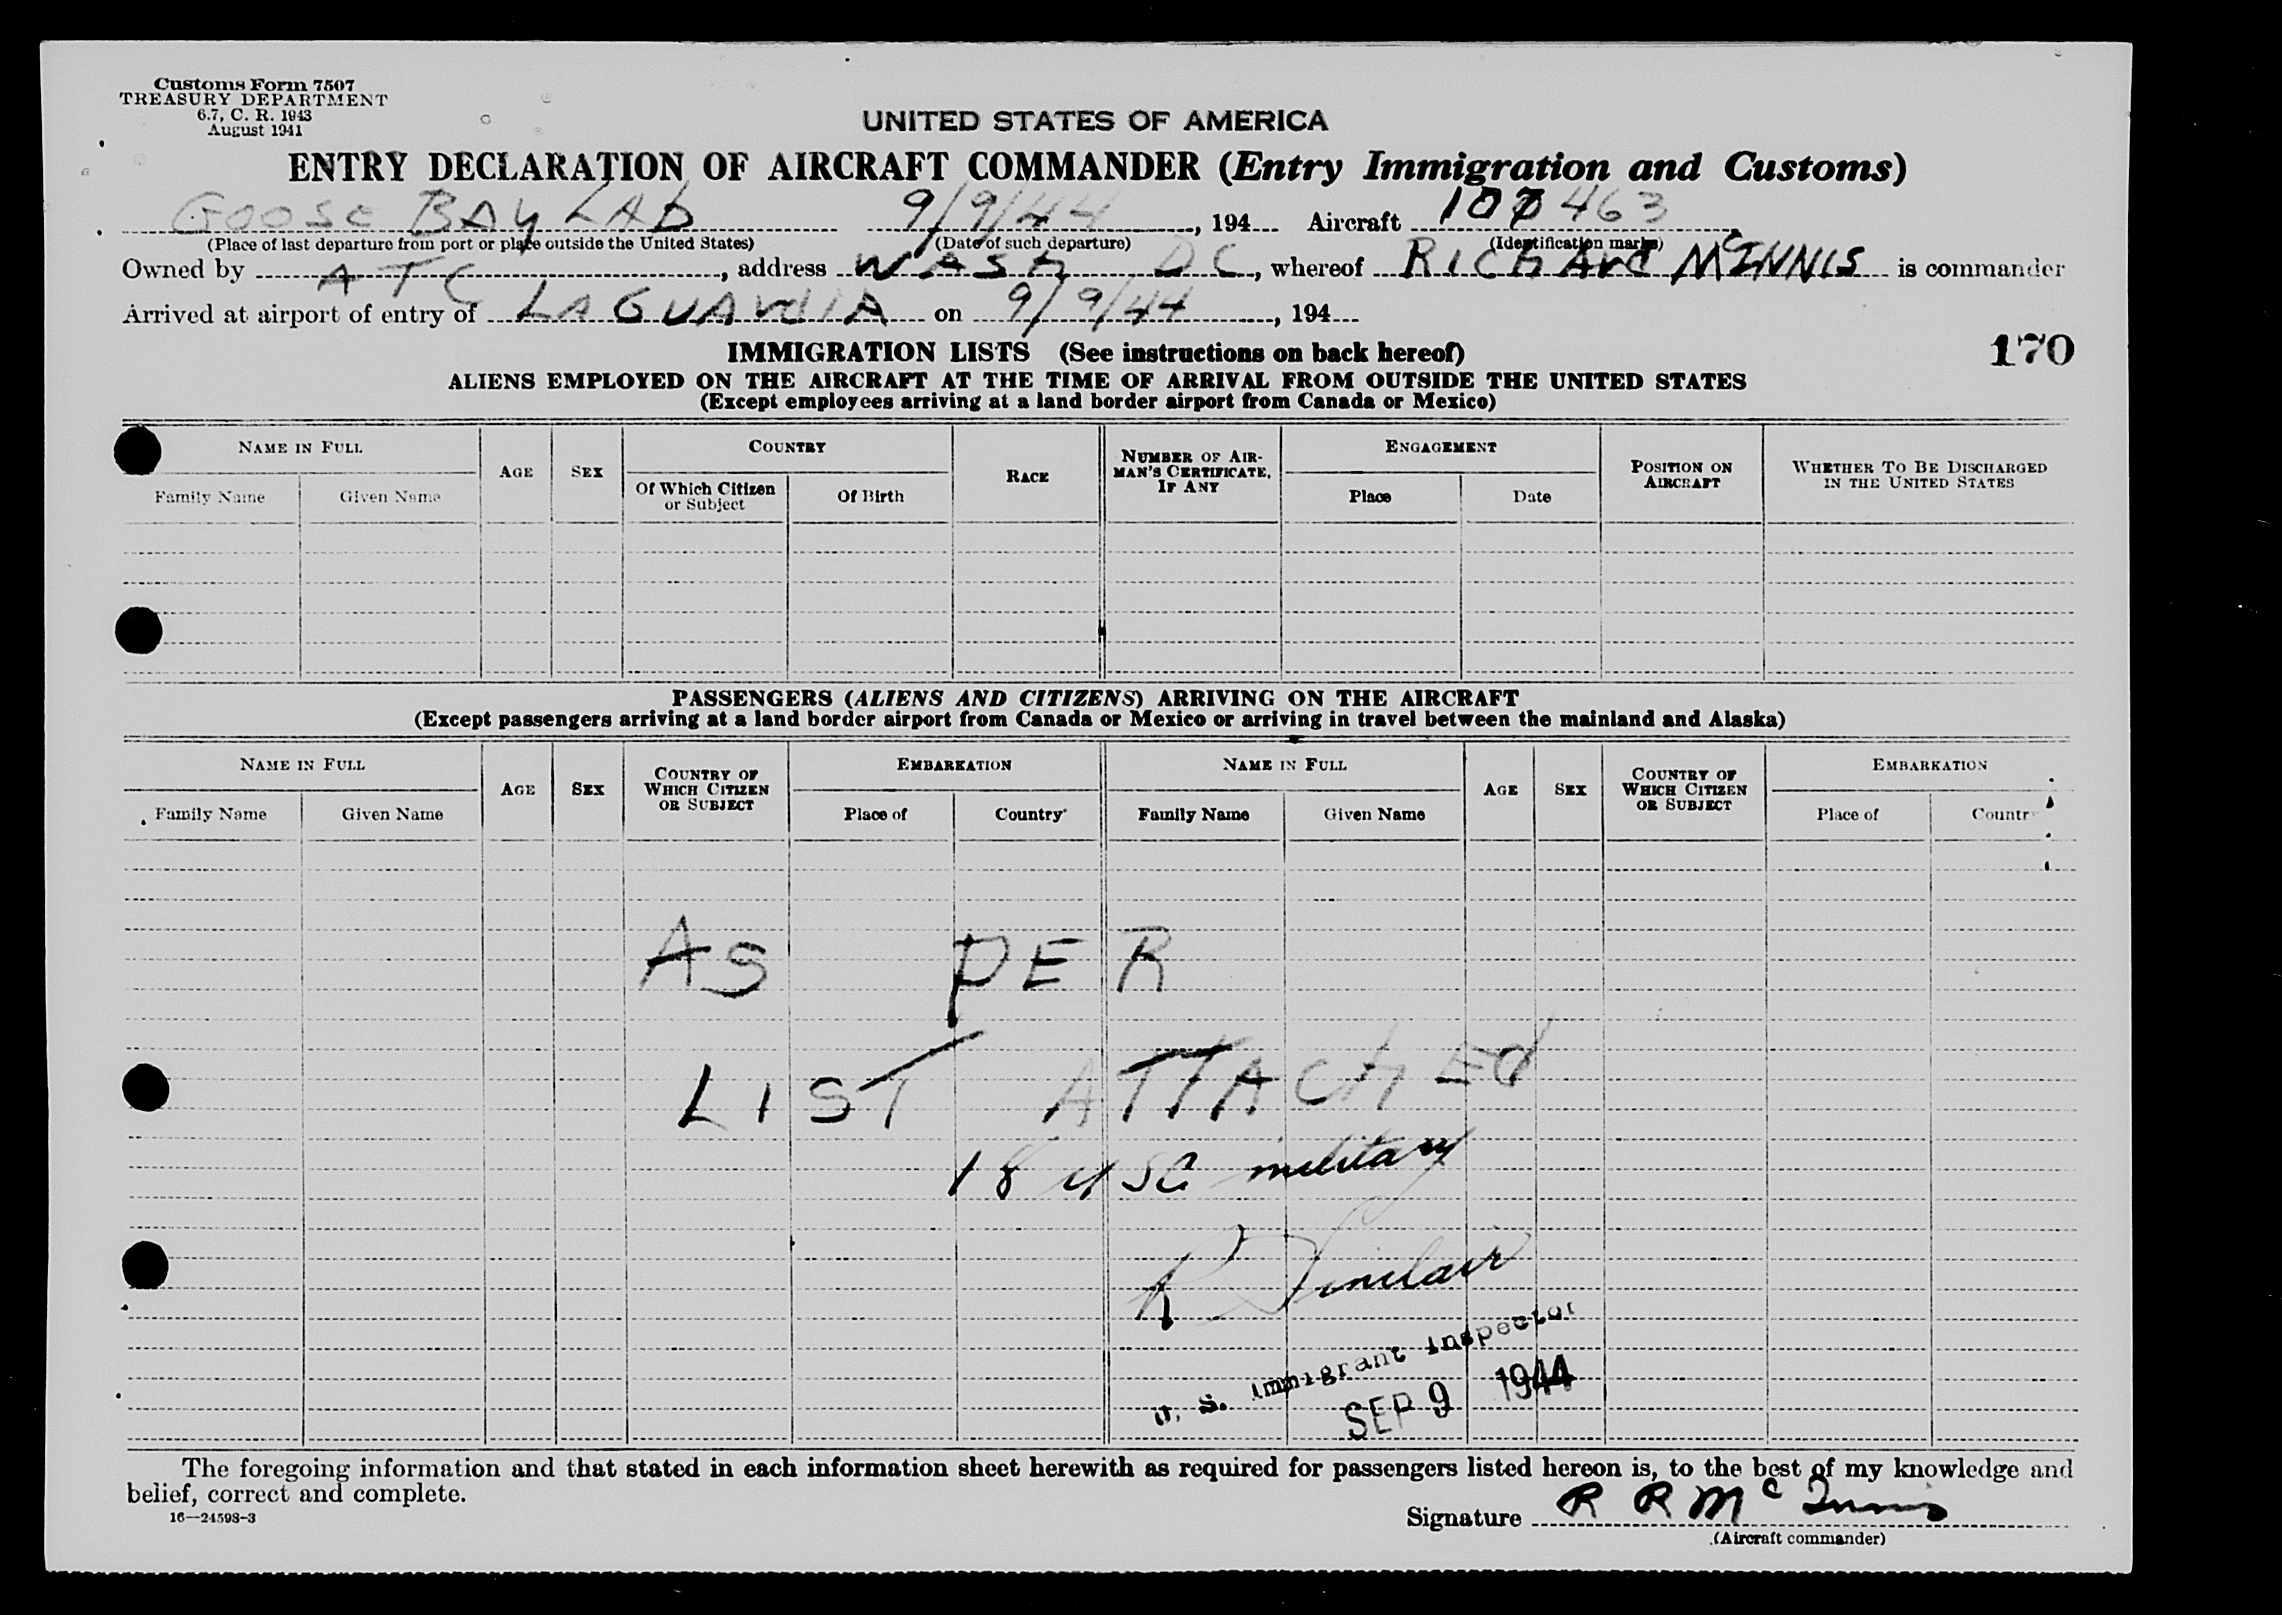 Customs Form 7507
TREASURY DEPARTMENT
6.7, C. R. 1943
August 1941
UNITED STATES OF AMERICA
ENTRY DECLARATION OF AIRCRAFT COMMANDER (Entry Immigration and Customs)
GOOSE BAY LAB 9/9/44, 194 Aircraft 463
(Place of last departure from port or place outside the United States) (Date of such departure) (Identification marks)
Owned by ATC, address WASH DC, whereof RICHArd McINNIS is commander
Arrived at airport of entry of LAGUArdIA on 9/9/44, 194
170
IMMIGRATION LISTS (See instructions on back hereof)
ALIENS EMPLOYED ON THE AIRCRAFT AT THE TIME OF ARRIVAL FROM OUTSIDE THE UNITED STATES
(Except employees arriving at a land border airport from Canada or Mexico)
NAME IN FULL AGE SEX COUNTRY RACE NUMBER OF AIRMAN'S CERTIFICATE, IF ANY ENGAGEMENT POSITION ON AIRCRAFT WHETHER TO BE DISCHARGED IN THE UNITED STATES
Family Name Given Name Of Which Citizen or Subject Of Birth Place Date
PASSENGERS (ALIENS AND CITIZENS) ARRIVING ON THE AIRCRAFT
(Except passengers arriving at a land border airport from Canada or Mexico or arriving in travel between the mainland and Alaska)
NAME IN FULL AGE SEX COUNTRY OF WHICH CITIZEN OR SUBJECT EMBARKATION NAME IN FULL AGE SEX COUNTRY OF WHICH CITIZEN OR SUBJECT EMBARKATION
Family Name Given Name Place of Country Family Name Given Name Place of Countr
AS PER
LIST ATTACHEd
18 USC military
R Sinclair
U. S. Immigrant Inspector
SEP 9 1944
The foregoing information and that stated in each information sheet herewith as required for passengers listed hereon is, to the best of my knowledge and
belief, correct and complete.
16—24598-3
Signature R R McInnis
(Aircraft commander)